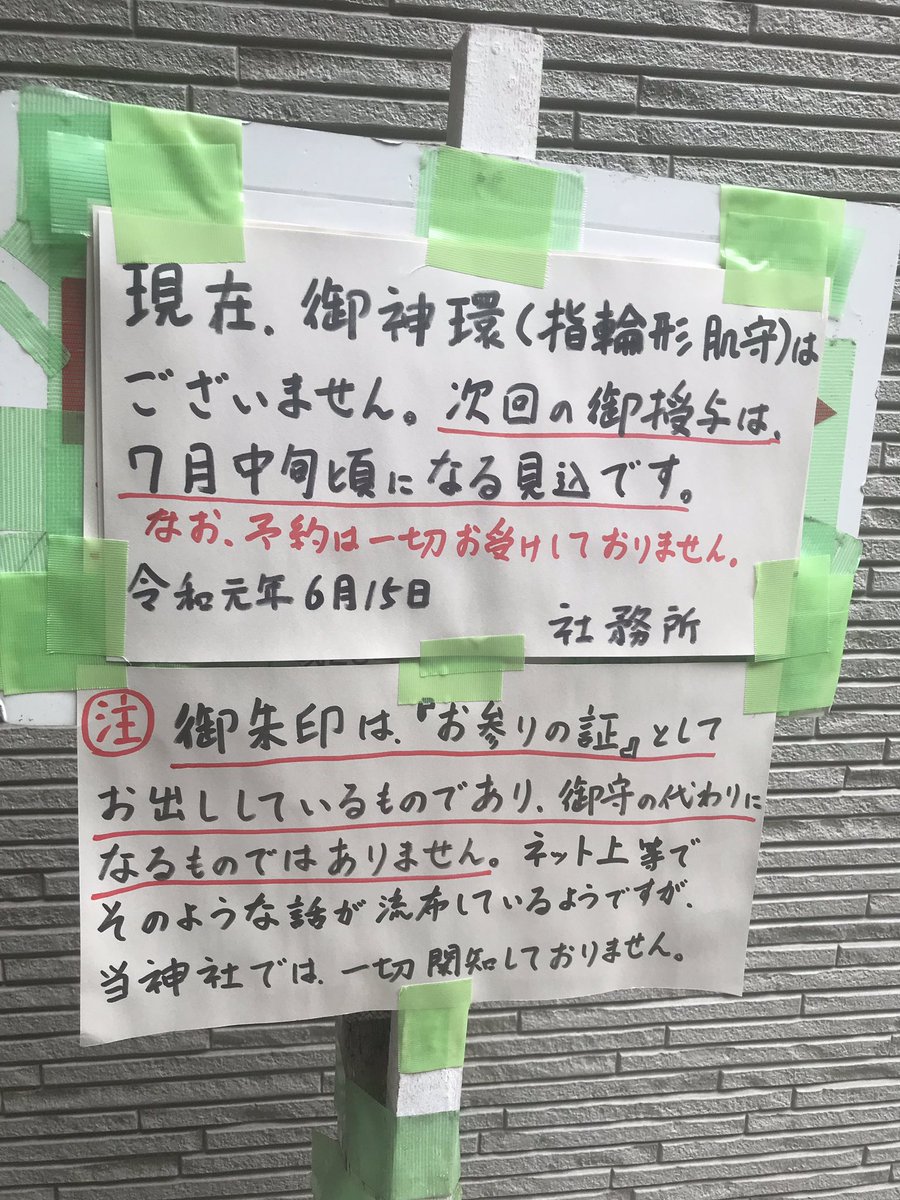 現在、御神環(指輪形肌守)は
ございません。次回の御授与は、
7月中旬頃になる見込です。
なお、予約は一切お受けしておりません。
令和元年6月15日
社務所
注 御朱印は、『お参りの証』として
お出ししているものであり、御守の代わりに
なるものではありません。ネット上等で
そのような話が流布しているようですが、
当神社では、一切関知しておりません。